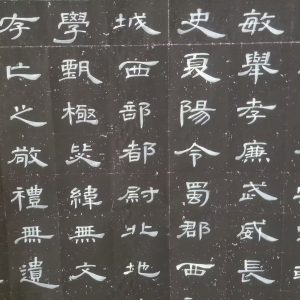 敏舉孝廉武威長
史夏陽令蜀郡西
城西部都尉北地
學甄極毖緯無文
存亡之敬禮無遺